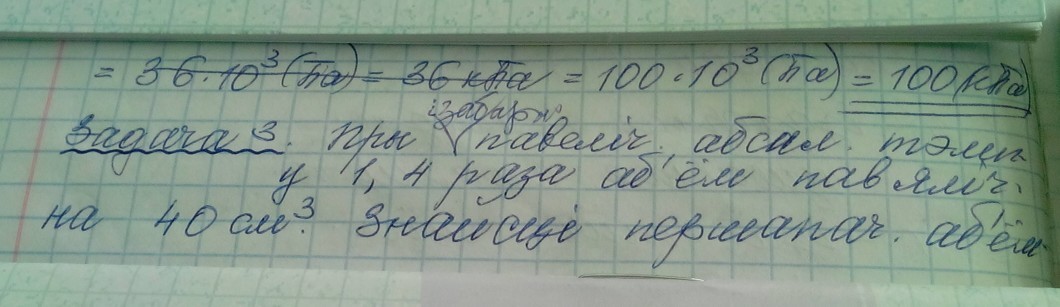 = 36·10³ (Па) = 36 кПа = 100·10³ (Па) = 100 (кПа)
ізабарн.
Задача 3. Пры павеліч. абсал. тэмп.
у 1,4 раза аб'ём павяліч.
на 40 см³. Знайсці першапач. аб'ём